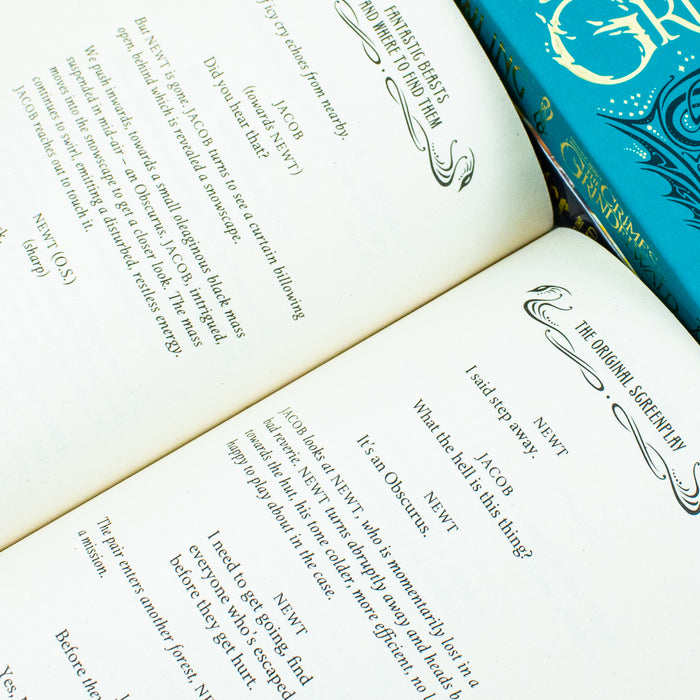 FANTASTIC BEASTS
AND WHERE TO FIND THEM
cry echoes from nearby.
JACOB
(towards NEWT)
Did you hear that?
But NEWT is gone. JACOB turns to see a curtain billowing
open, behind which is revealed a snowscape.
We push inwards, towards a small oleaginous black mass
suspended in mid-air – an Obscurus. JACOB, intrigued,
moves into the snowscape to get a closer look. The mass
continues to swirl, emitting a disturbed, restless energy.
JACOB reaches out to touch it.
NEWT (O.S.)
(sharp)
THE ORIGINAL SCREENPLAY
NEWT
I said step away.
JACOB
What the hell is this thing?
NEWT
It's an Obscurus.
JACOB looks at NEWT, who is momentarily lost in a
bad reverie. NEWT turns abruptly away and heads
towards the hut, his tone colder, more efficient, no
happy to play about in the case.
NEWT
I need to get going, find
everyone who's escaped
before they get hurt.
The pair enters another forest, NEWT
a mission.
Before
Yes,
&
THE CRIMES
OF
GRINDELWALD